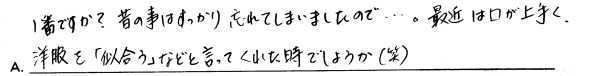 1番ですか？昔の事はすっかり忘れてしまいましたので…。最近は口が上手く、
A. 洋服を「似合う」などと言ってくれた時でしょうか(笑)